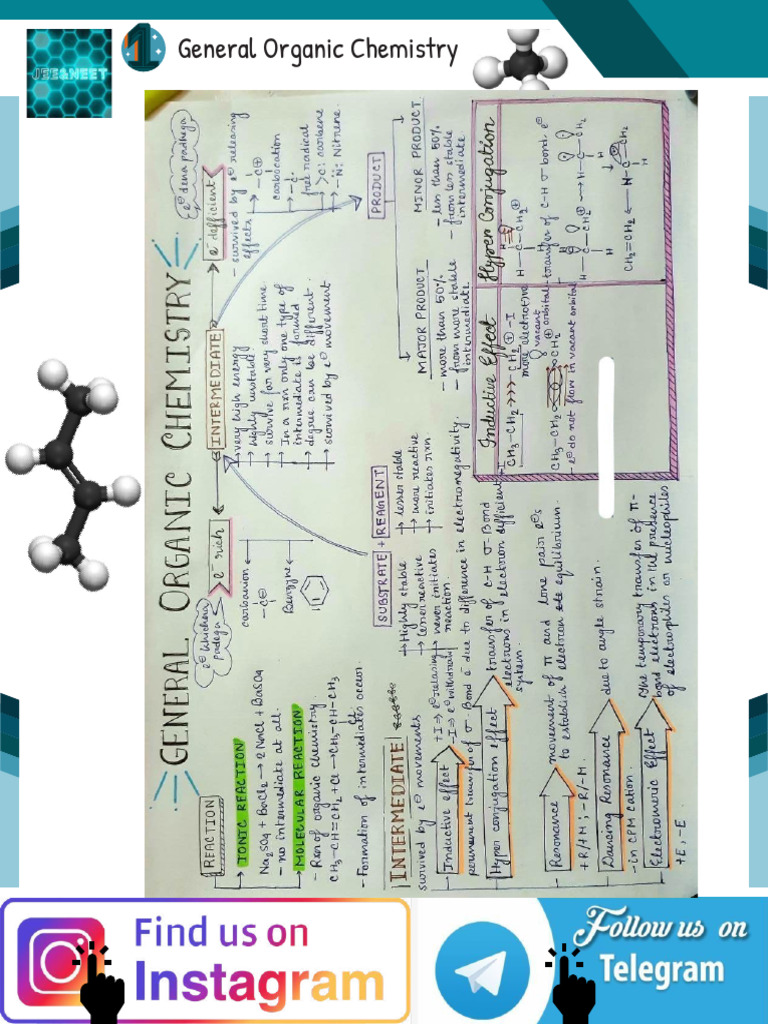 JEE&NEET
1
General Organic Chemistry
GENERAL ORGANIC CHEMISTRY
REACTION
IONIC REACTION
Na₂SO₄ + BaCl₂ → 2NaCl + BaSO₄
- no intermediate at all.
MOLECULAR REACTION
- Rxn of organic chemistry.
CH₃-CH=CH₂ + Cl → CH₃-CH-CH₃
Cl
- Formation of intermediates occur.
e⁻ rich
carbanion
-C⊖
Benzyne
INTERMEDIATE
very high energy
highly unstable
survive for very short time
In a rxn only one type of
intermediate is formed
degree can be different.
survived by e⊖ movement
e⁻ defficient
e⊖ dena padhega
- survived by e⊖ releasing
effects
-C⊕
carbocation
-Ċ.
free radical
>C: carbene
-N̈: Nitrene.
SUBSTRATE + REAGENT
Highly stable
lesser reactive
never initiates
reaction
lesser stable
more reactive
initiates rxn
PRODUCT
MAJOR PRODUCT
- more than 50%
- from more stable
intermediate.
MINOR PRODUCT
- less than 50%
- from less stable
intermediate
INTERMEDIATE
survived by e⊖ movements
Inductive effect
+I ⇒ e⊖ releasing
-I ⇒ e⊖ withdrawing
permanent transfer of σ-Bond e⁻ due to difference in electronegativity.
Hyper conjugation effect
transfer of C-H σ Bond
electrons in electron defficient
system.
Resonance
movement of π and lone pair e⊖s
to establish electron equilibrium.
+R/+M ; -R/-M
Dancing Resonance
due to angle strain.
- in CPM cation.
Electromeric Effect
The temporary transfer of π-
bond electrons in the presence
of electrophiles or nucleophiles
+E, -E
Inductive Effect
CH₃-CH₂→→→CH₂⊕ -I
more electrotive
vacant
orbital
CH₃-CH₂ CH₂
- e⊖ do not flow in vacant orbital
Hyper Conjugation
H-C-CH₂⊕
transfer of C-H σ bond e⊖
CH₂=CH₂
Find us on
Instagram
Follow us on
Telegram